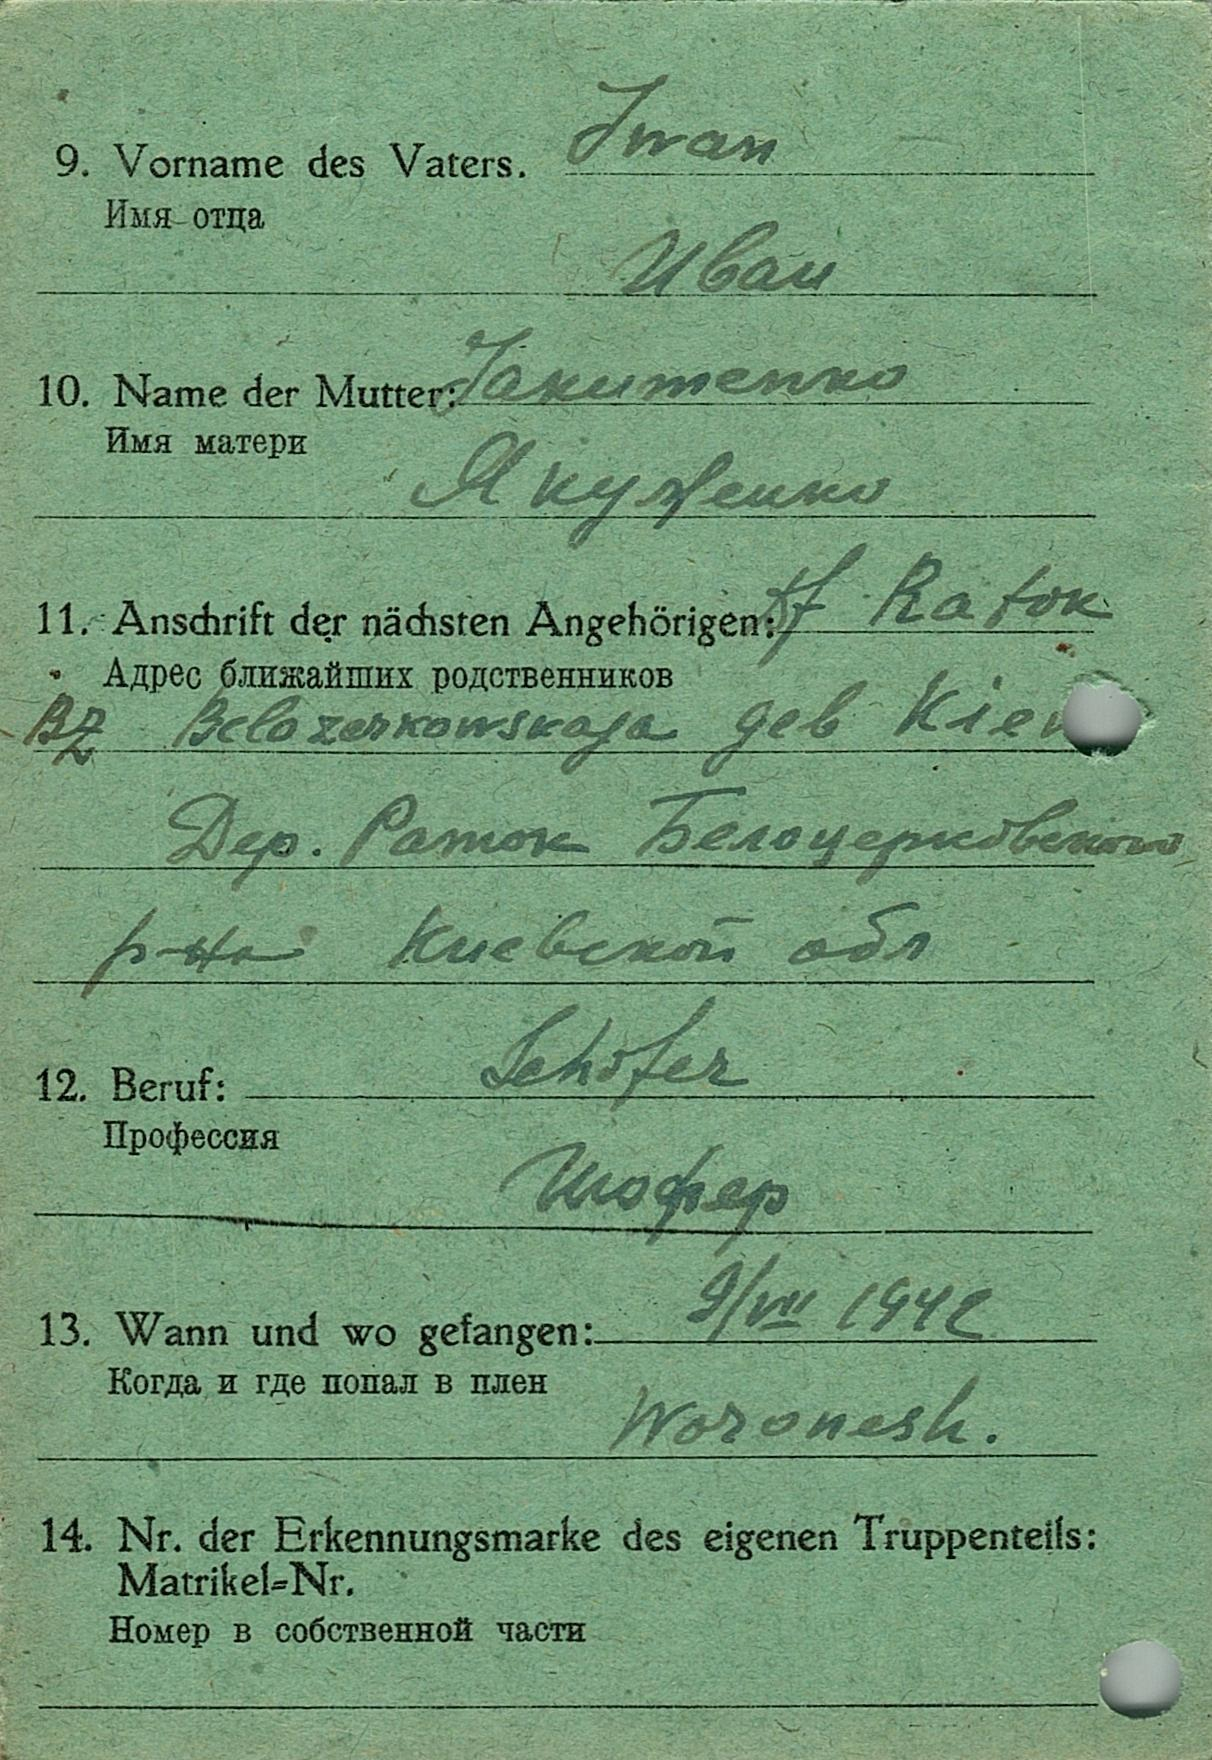 9. Vorname des Vaters. Iwan
Имя отца
Иван
10. Name der Mutter: Jakutenko
Имя матери
Якуженко
11. Anschrift der nächsten Angehörigen: Df Ratok
Адрес ближайших родственников
BZ Belozerkowskaja geb Kiew
Дер. Раток Белоцерковского
р-на Киевской обл
12. Beruf: Schofer
Профессия
Шофер
13. Wann und wo gefangen: 9/VII 1942
Когда и где попал в плен
Woronesh.
14. Nr. der Erkennungsmarke des eigenen Truppenteils:
Matrikel=Nr.
Номер в собственной части